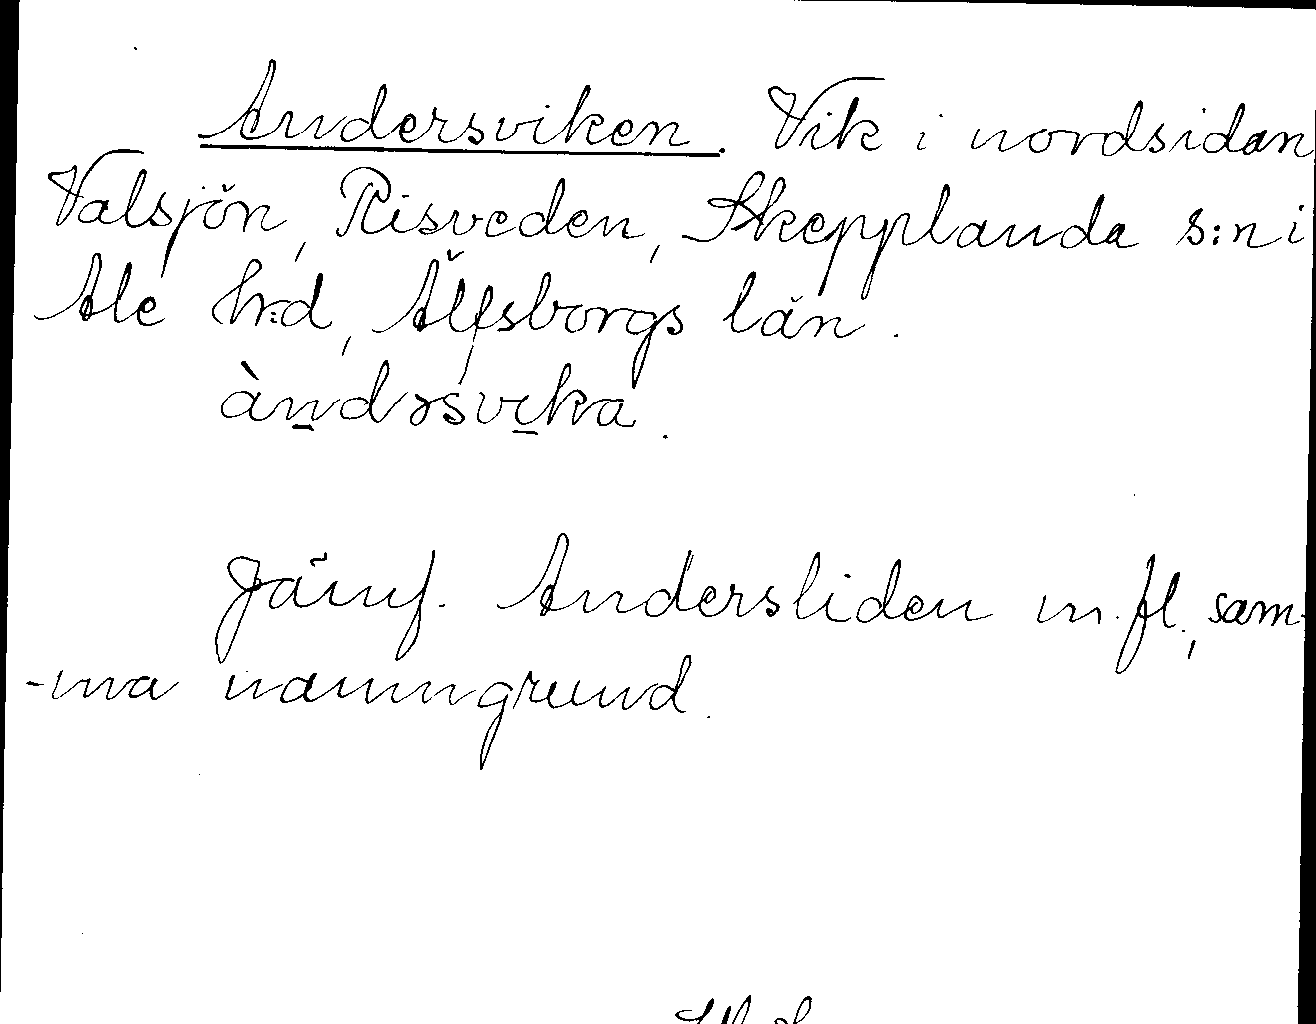 Andersviken. Vik i nordsidan
Valsjön, Risveden, Skepplanda s:n i
Ale h:d, Älfsborgs län.
àndɔsvika.
Jämf. Andersliden m. fl., sam-
-ma namngrund.